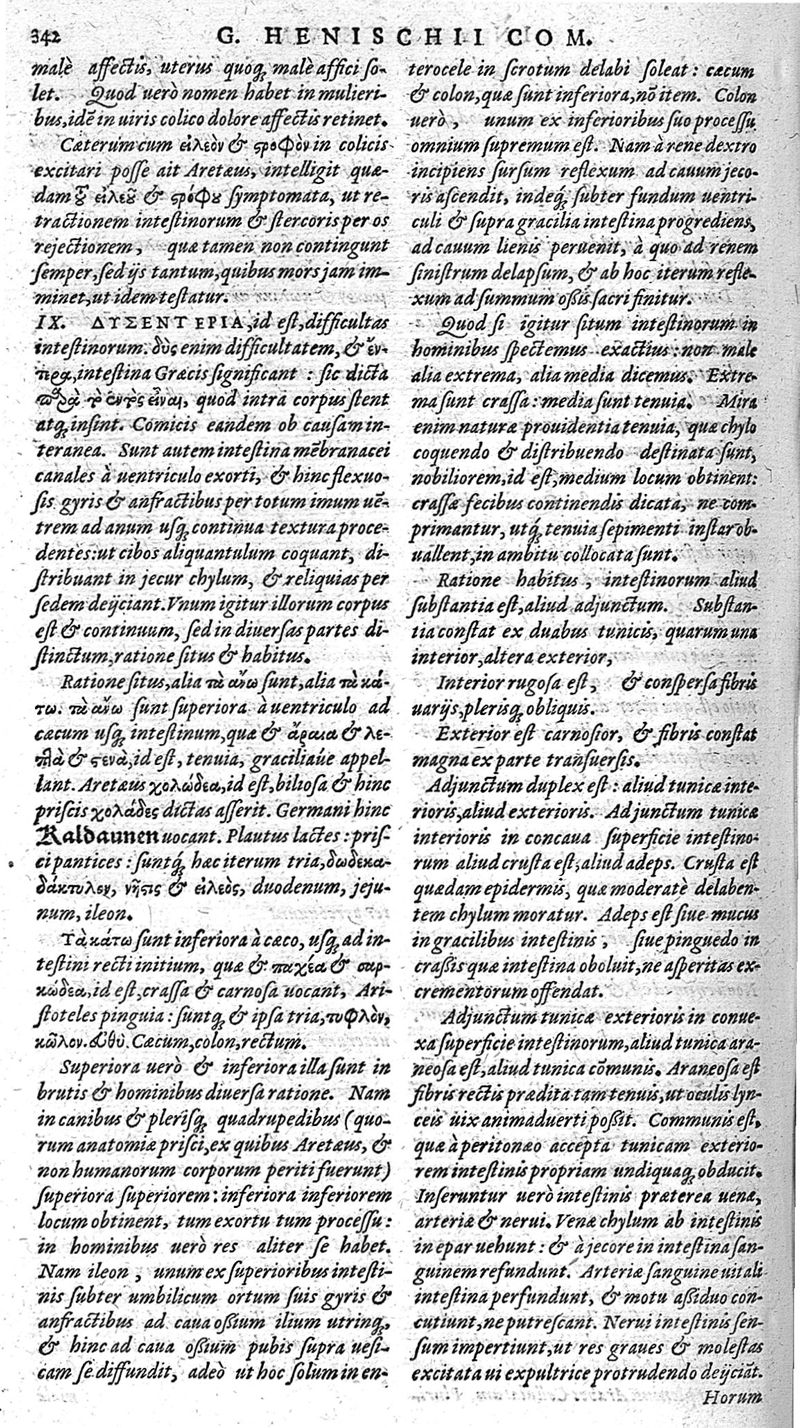 342
G. HENISCHII COM.
malè affectis, uterus quoq; malè affici so-
let. Quod uerò nomen habet in mulieri-
bus, idē in uiris colico dolore affectis retinet.
Cæterum cum εἰλεὸν & ςροφὸν in colicis
excitari posse ait Aretæus, intelligit quæ-
dam τȣ͂ εἰλεοῦ & ςρόφȣ symptomata, ut re-
tractionem intestinorum & stercoris per os
rejectionem, quæ tamen non contingunt
semper, sed ijs tantum, quibus mors jam im-
minet, ut idem testatur.
IX. ΔΥΣΕΝΤΕΡΙΑ, id est, difficultas
intestinorum. δυς enim difficultatem, & ἔν-
τερα, intestina Græcis significant : sic dicta
παρὰ τὸ ἐντὸς εἶναι, quod intra corpus stent
atq; insint. Comicis eandem ob causam in-
teranea. Sunt autem intestina mēbranacei
canales à uentriculo exorti, & hinc flexuo-
sis gyris & anfractibus per totum imum uē-
trem ad anum usq; continua textura proce-
dentes: ut cibos aliquantulum coquant, di-
stribuant in jecur chylum, & reliquias per
sedem deijciant. Vnum igitur illorum corpus
est & continuum, sed in diuersas partes di-
stinctum, ratione situs & habitus.
Ratione situs, alia τὰ ἄνω sunt, alia τὰ κά-
τω. τὰ ἄνω sunt superiora à uentriculo ad
cæcum usq; intestinum, quæ & ἄραια & λε-
πτὰ & ςενὰ, id est, tenuia, graciliaúe appel-
lant. Aretæus χολώδεα, id est, biliosa & hinc
priscis χολάδες dictas asserit. Germani hinc
Kaldaunen uocant. Plautus lactes : pris-
ci pantices : suntq; hæc iterum tria, δωδεκα-
δάκτυλον, νῆςις & εἰλεὸς, duodenum, jeju-
num, ileon.
Τὰ κάτω sunt inferiora à cæco, usq; ad in-
testini recti initium, quæ & παχέα & σαρ-
κώδεα, id est, crassa & carnosa uocant, Ari-
stoteles pinguia : suntq; & ipsa tria, τυφλὸν,
κῶλον. εὐθύ. Cæcum, colon, rectum.
Superiora uerò & inferiora illa sunt in
brutis & hominibus diuersa ratione. Nam
in canibus & plerisq; quadrupedibus (quo-
rum anatomiæ prisci, ex quibus Aretæus, &
non humanorum corporum periti fuerunt)
superiora superiorem : inferiora inferiorem
locum obtinent, tum exortu tum processu :
in hominibus uerò res aliter se habet.
Nam ileon, unum ex superioribus intesti-
nis subter umbilicum ortum suis gyris &
anfractibus ad caua ossium ilium utrinq;,
& hinc ad caua ossium pubis supra uesi-
cam se diffundit, adeò ut hoc solum in en-
terocele in scrotum delabi soleat : cæcum
& colon, quæ sunt inferiora, nō item. Colon
uerò, unum ex inferioribus suo processu
omnium supremum est. Nam à rene dextro
incipiens sursum reflexum ad cauum jeco-
ris ascendit, indeq; subter fundum uentri-
culi & supra gracilia intestina progrediens,
ad cauum lienis peruenit, à quo ad renem
sinistrum delapsum, & ab hoc iterum refle-
xum ad summum ossis sacri finitur.
Quod si igitur situm intestinorum in
hominibus spectemus exactius : non male
alia extrema, alia media dicemus. Extre-
ma sunt crassa : media sunt tenuia. Mira
enim naturæ prouidentia tenuia, quæ chylo
coquendo & distribuendo destinata sunt,
nobiliorem, id est, medium locum obtinent:
crassæ fecibus continendis dicata, ne com-
primantur, utq; tenuia sepimenti instar ob-
uallent, in ambitu collocata sunt.
Ratione habitus, intestinorum aliud
substantia est, aliud adjunctum. Substan-
tia constat ex duabus tunicis, quarum una
interior, altera exterior,
Interior rugosa est, & conspersa fibris
uarijs, plerisq; obliquis.
Exterior est carnosior, & fibris constat
magna ex parte transuersis.
Adjunctum duplex est : aliud tunicæ inte-
rioris, aliud exterioris. Adjunctum tunicæ
interioris in concaua superficie intestino-
rum aliud crusta est, aliud adeps. Crusta est
quædam epidermis, quæ moderatè delaben-
tem chylum moratur. Adeps est siue mucus
in gracilibus intestinis, siue pinguedo in
crassis quæ intestina oboluit, ne asperitas ex-
crementorum offendat.
Adjunctum tunicæ exterioris in conue-
xa superficie intestinorum, aliud tunica ara-
neosa est, aliud tunica cōmunis. Araneosa est
fibris rectis prædita tam tenuis, ut oculis lyn-
ceis uix animaduerti possit. Communis est,
quæ à peritonæo accepta tunicam exterio-
rem intestinis propriam undiquaq; obducit.
Inseruntur uerò intestinis præterea uenæ,
arteriæ & nerui. Venæ chylum ab intestinis
in epar uehunt : & à jecore in intestina san-
guinem refundunt. Arteriæ sanguine uitali
intestina perfundunt, & motu assiduo con-
cutiunt, ne putrescant. Nerui intestinis sen-
sum impertiunt, ut res graues & molestas
excitata ui expultrice protrudendo deijciāt.
Horum